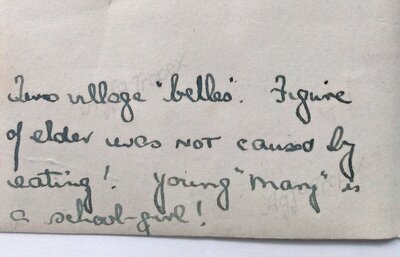 Two village "belles". Figure
of elder was NOT caused by
eating! Young "Mary" is
a school-girl!